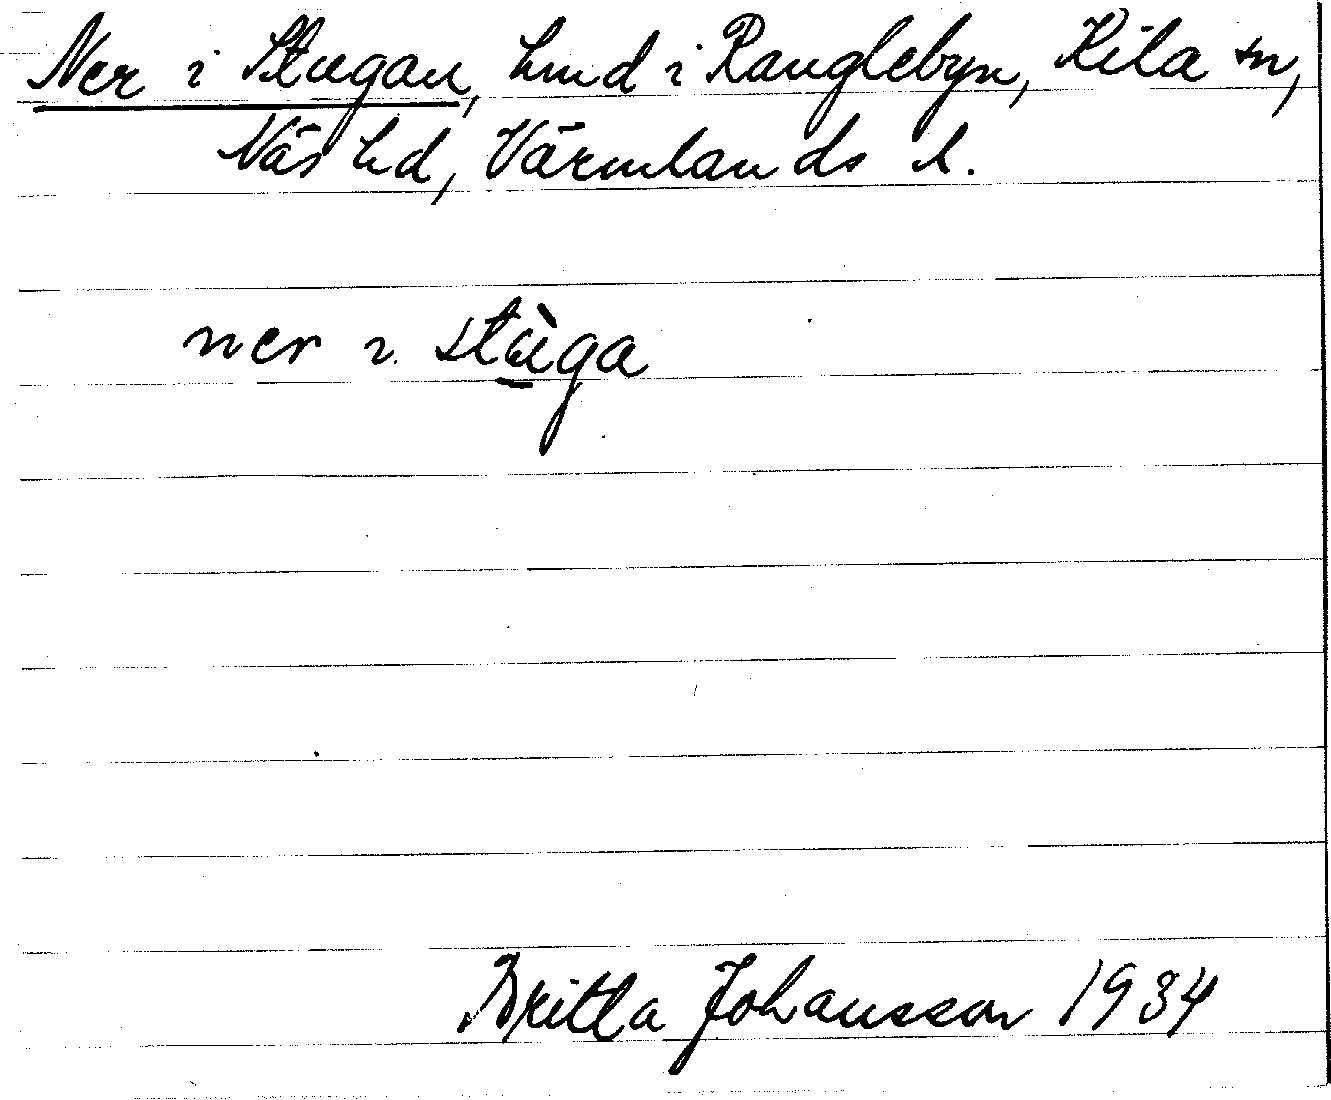 Ner i Stugan, hmd i Ranglebyn, Kila sn,
Näs hd, Värmlands l.
ner i stu̠̇̀ga
Britta Johansson 1934